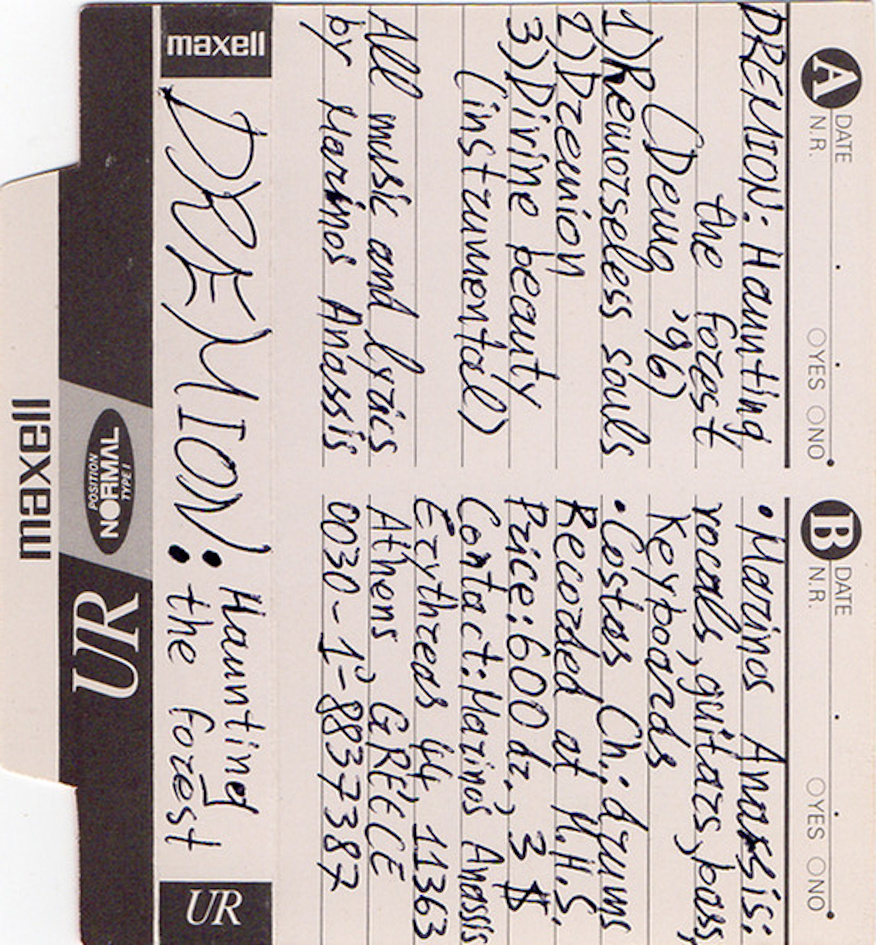 A DATE
N.R. ○YES ○NO
DREMION: Haunting
the forest
(Demo '96)
1) Remorseless souls
2) Dremion
3) Divine beauty
(instrumental)
All music and lyrics
by Marinos Anassis
B DATE
N.R. ○YES ○NO
• Marinos Anassis:
vocals, guitars, bass,
Keyboards
• Costas Ch.: drums
Recorded at M.H.S.
Price: 600 dr., 3 $
Contact: Marinos Anassis
Erythreas 44 11363
Athens, GREECE
0030-1-8837387
maxell
DREMION: Haunting
the forest
UR
POSITION
NORMAL
TYPE I
UR
maxell